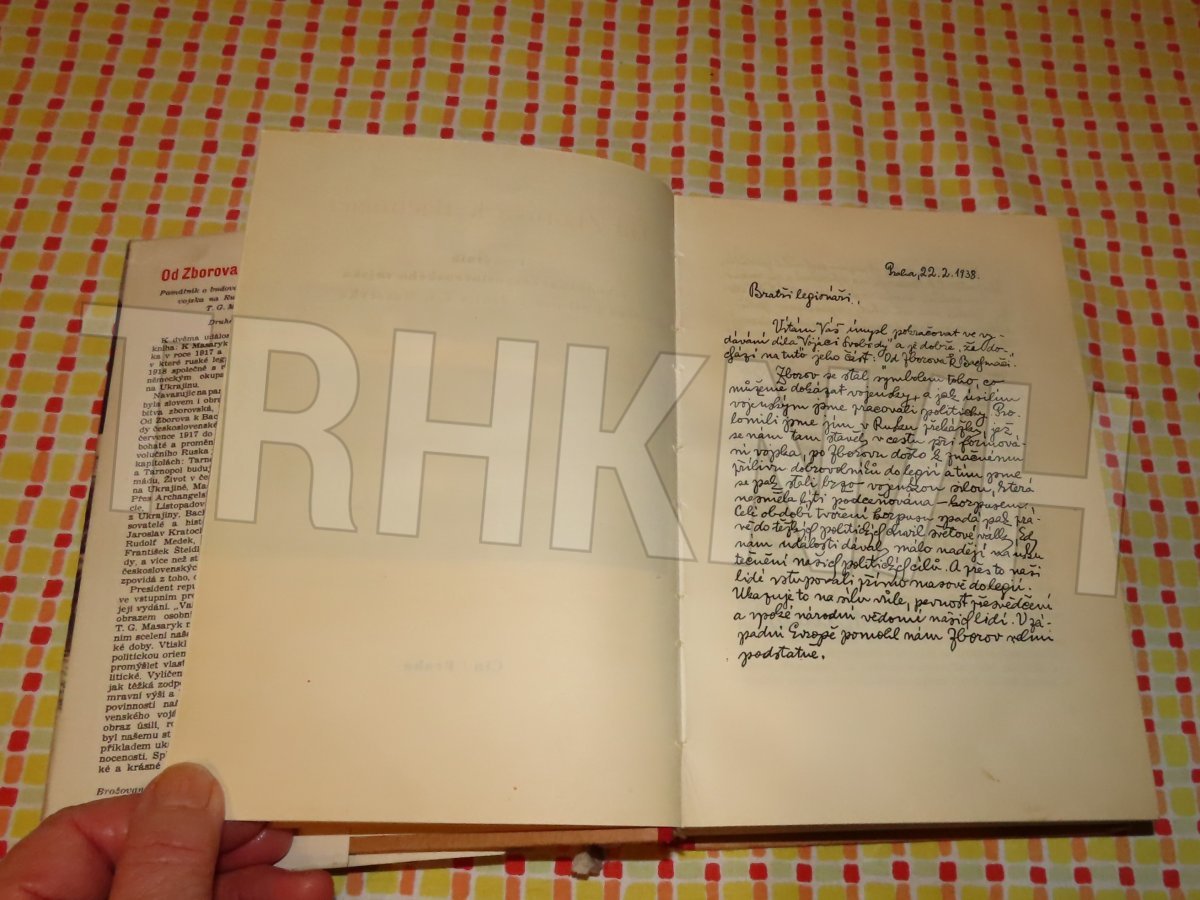 Od Zborova
Památník o budov
vojska na Ru
T. G. M
Druhé
K dvěma událos
kniha: K Masaryk
ka v roce 1917 a
v které ruské leg
1918 společně s r
německým okupa
na Ukrajinu.
Navazujíc na pa
byla slovem i obra
bitva zborovská,
Od Zborova k Bac
dy československé
července 1917 do
bohaté a proměn
volučního Ruska
kapitolách: Tarno
a Tarnopol buduj
mádu, Život v če
na Ukrajině, Ma
Přes Archangelsk
cie, Listopadov
z Ukrajiny, Bac
sovatelé a hist
Jaroslav Kratoch
Rudolf Medek,
František Šteidl
dy, a více než s
československých
zpovídá z toho,
President repu
ve vstupním pro
její vydání. „Va
obrazem osobní
T. G. Masaryk
ním scelení naše
ké doby. Vtiskl
politickou orien
promýšlet vlast
litické. Vylíčen
jak těžká zodp
mravní výši a
povinnosti naš
venského vojá
obraz úsilí, ro
byl našemu st
příkladem uk
nocenosti. Sp
ké a krásné
Brožovan
Praha, 22.2.1938.
Bratři legionáři,
Vítám Váš úmysl pokračovat ve vy-
dávání díla "Vojáci svobody" a je dobře, že do-
chází na tuto jeho část: "Od Zborova k Bachmači".
Zborov se stal symbolem toho, co
můžeme dokázat vojensky, a jak úsilím
vojenským jsme pracovali politicky. Pro-
lomili jsme jím v Rusku překážky, jež
se nám tam stavěly v cestu při formová-
ní vojska, po Zborovu došlo k značnému
přílivu dobrovolníků do legií a tím jsme
se pak stali brzo vojenskou silou, která
nesměla býti podceňována – korpusem.
Celé období tvoření korpusu spadá pak prá-
vě do těžkých politických chvil světové války, kdy
nám události dávaly málo nadějí na usku-
tečnění našich politických cílů. A přesto naši
lidé vstupovali přímo masově do legií.
Ukazuje to na sílu vůle, pevnost přesvědčení
a vysoké národní vědomí našich lidí. V zá-
padní Evropě pomohl nám Zborov velmi
podstatně.
TRHKNIH